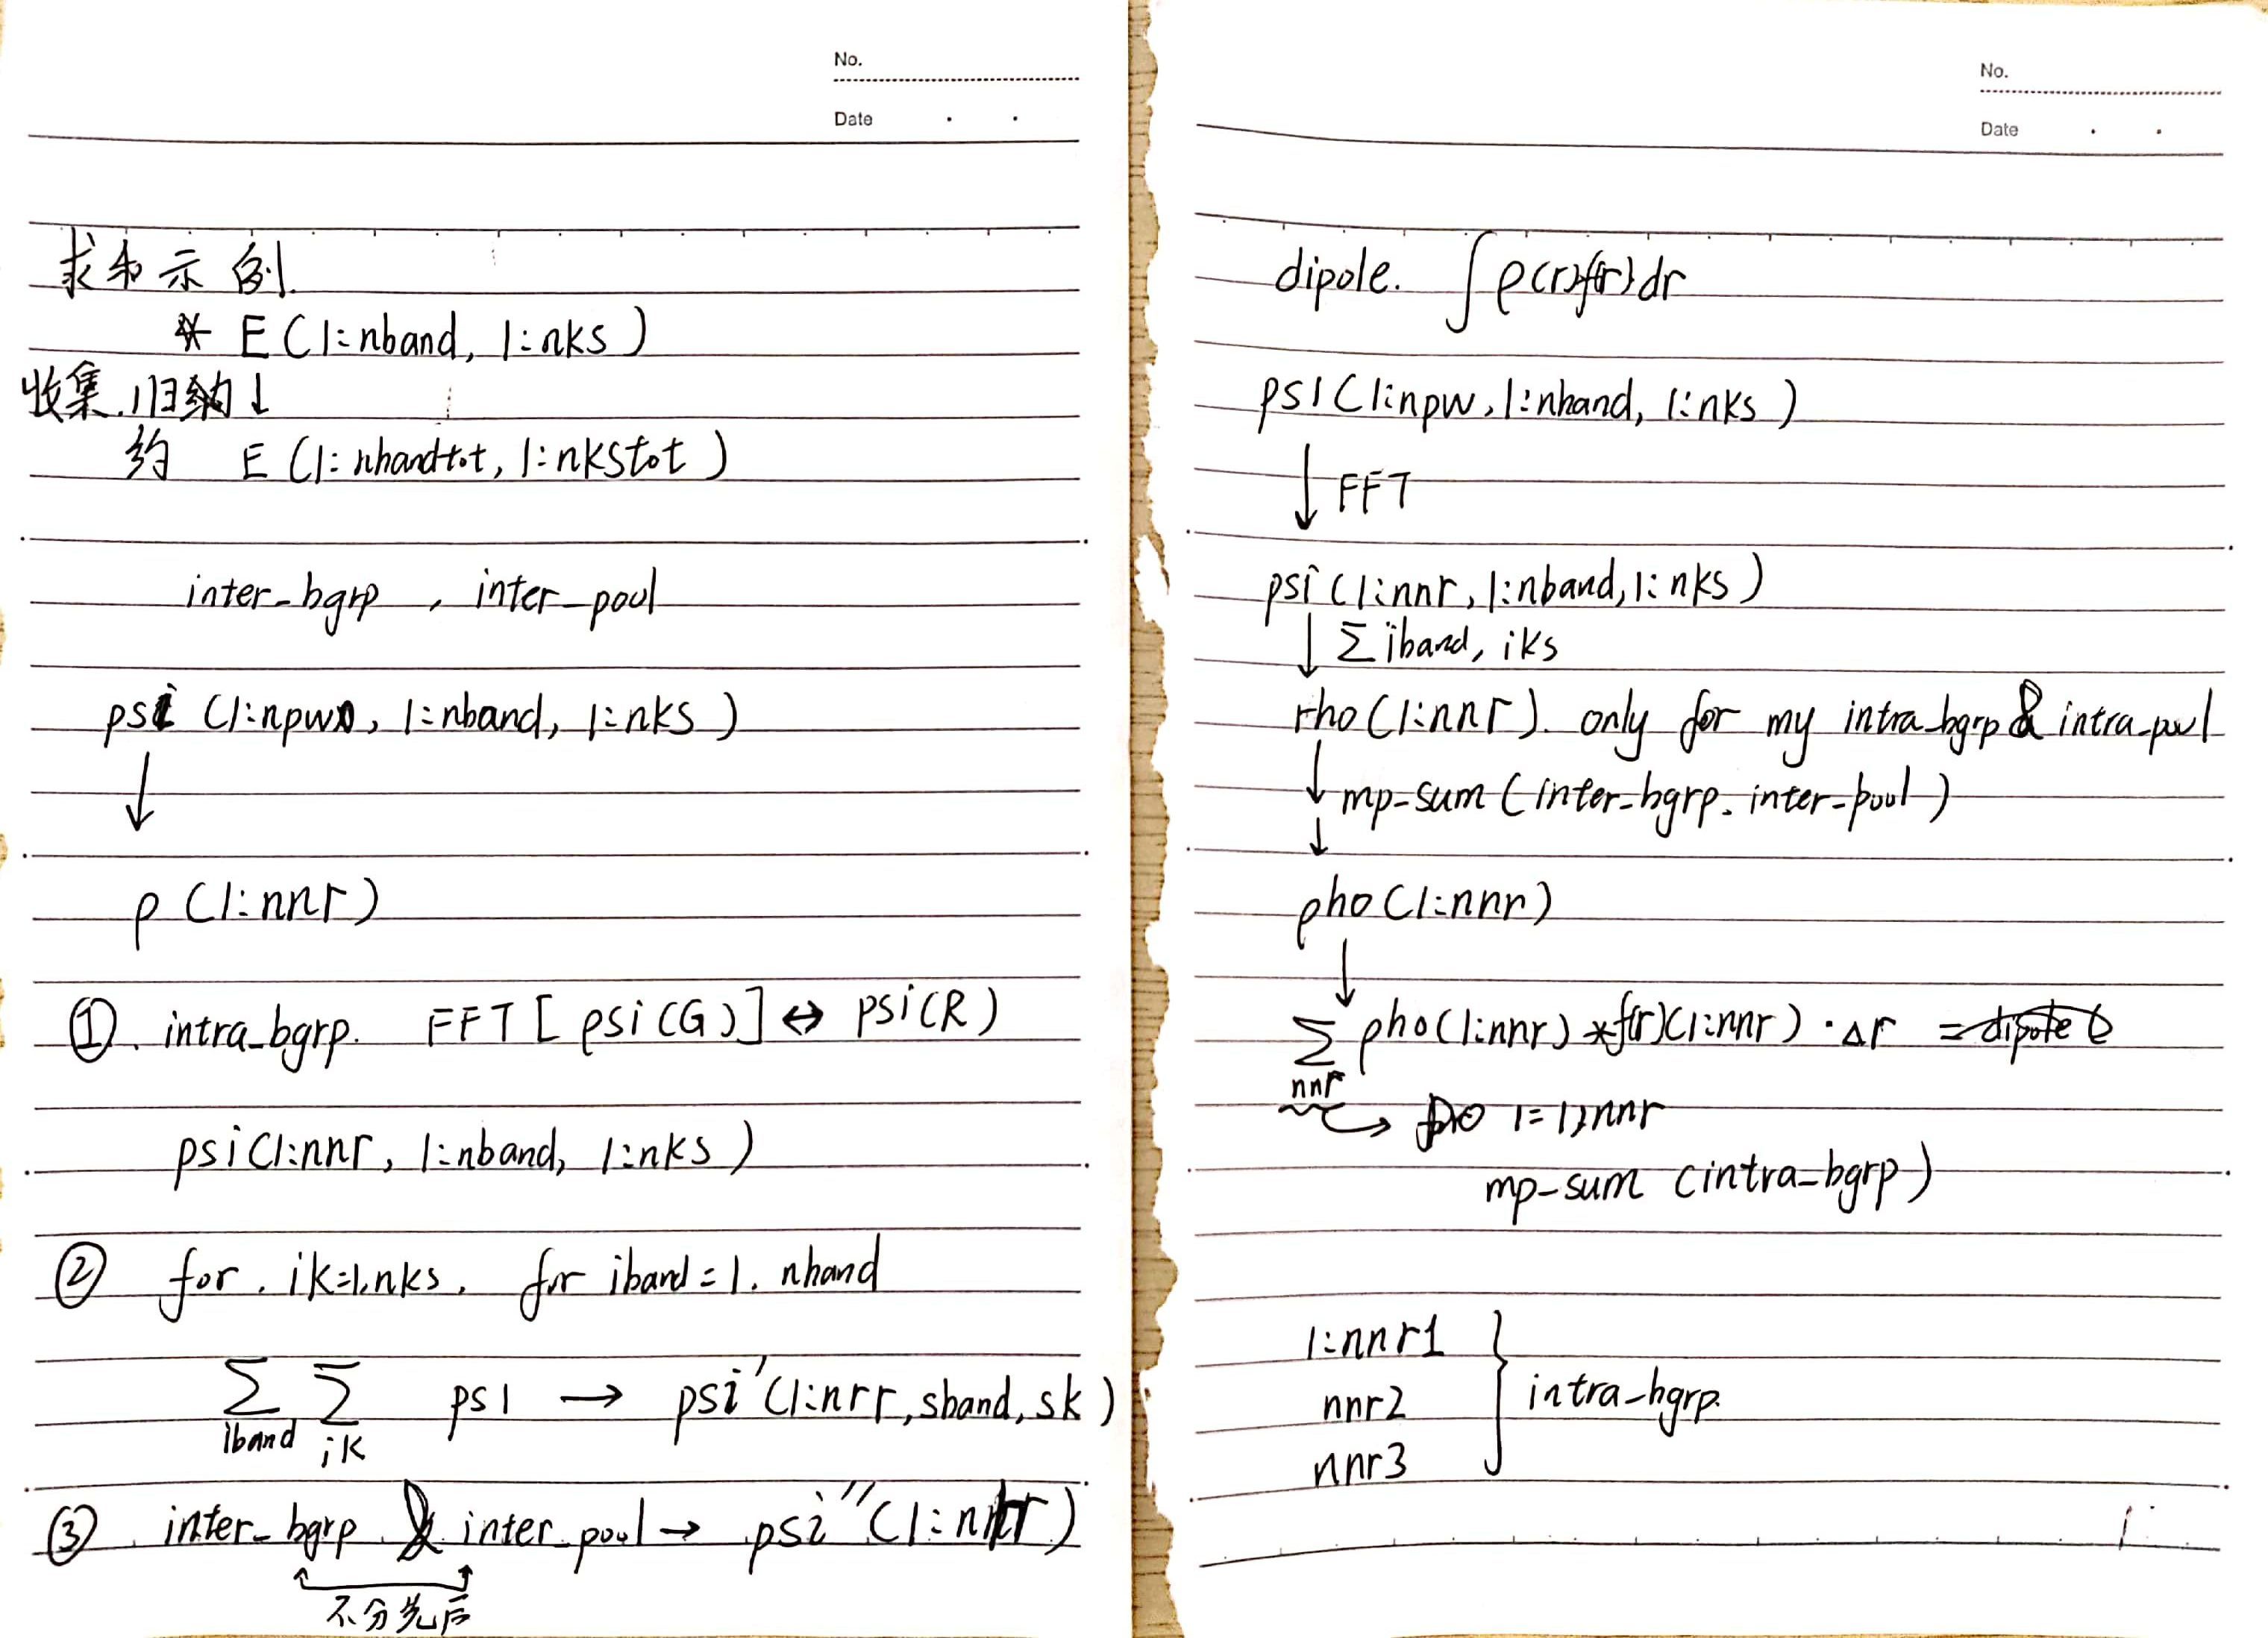 No.
Date
求和示例.
* E(1:nband, 1:nks)
收集.归纳↓
约 E(1:nbandtot, 1:nkstot)
inter_bgrp, inter_pool
psi (1:npw, 1:nband, 1:nks)
↓
ρ(1:nnr)
①. intra_bgrp. FFT[psi(G)]↔psi(R)
psi(1:nnr, 1:nband, 1:nks)
② for. ik=1,nks. for iband=1. nband
∑ ∑ psi → psi'(1:nrr, sband, sk)
iband ik
③. inter_bgrp & inter_pool → psi''(1:nnr)
不分先后
No.
Date
dipole. ∫ρ(r)f(r)dr
psi(1:npw, 1:nband, 1:nks)
↓ FFT
psi(1:nnr, 1:nband, 1:nks)
↓ ∑ iband, iks
rho(1:nnr). only for my intra_bgrp & intra_pool
↓ mp-sum (inter_bgrp. inter-pool)
↓
pho(1:nnr)
↓
∑ pho(1:nnr)*f(r)(1:nnr)·Δr = dipole
nnr
→ Do i=1,nnr
mp-sum (intra_bgrp)
1:nnr1
nnr2 } intra-bgrp.
nnr3